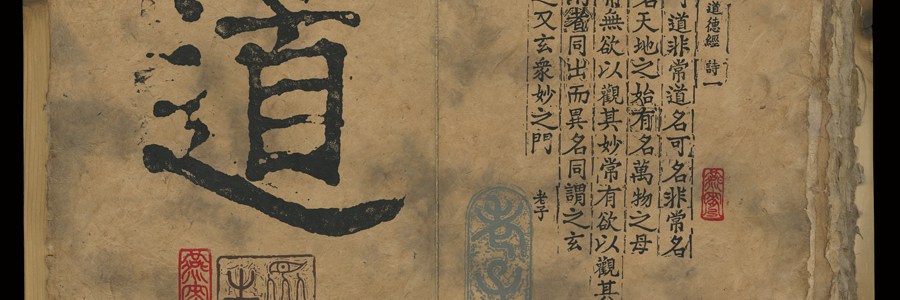 道德經 詩一
可道非常道名可名非常名
名天地之始有名萬物之母
常無欲以觀其妙常有欲以觀其
兩者同出而異名同謂之玄
之又玄衆妙之門
老子
道